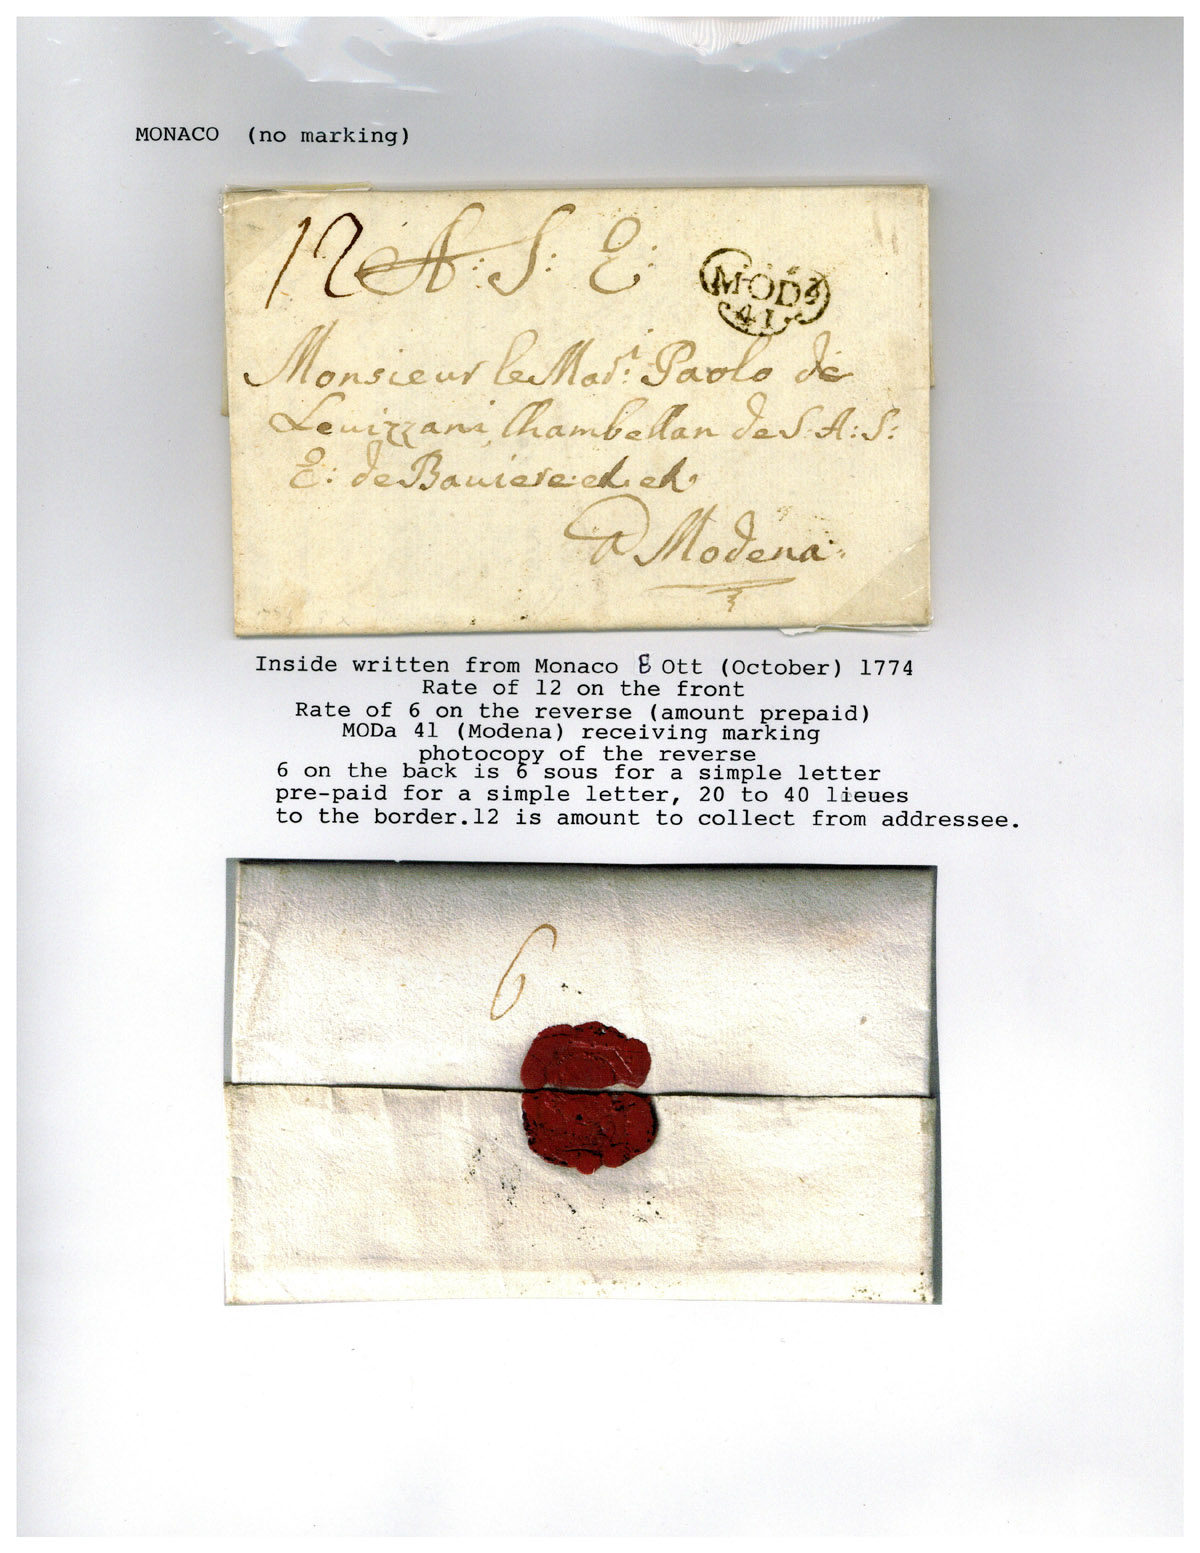 MONACO (no marking)
12 A: S: E:
MODa
41
Monsieur le Mar: Paolo de
Levizzani Chambellan de S: A: S:
E: de Baviere et. et.
a Modena
Inside written from Monaco 8 Ott (October) 1774
Rate of 12 on the front
Rate of 6 on the reverse (amount prepaid)
MODa 41 (Modena) receiving marking
photocopy of the reverse
6 on the back is 6 sous for a simple letter
pre-paid for a simple letter, 20 to 40 lieues
to the border.12 is amount to collect from addressee.
6